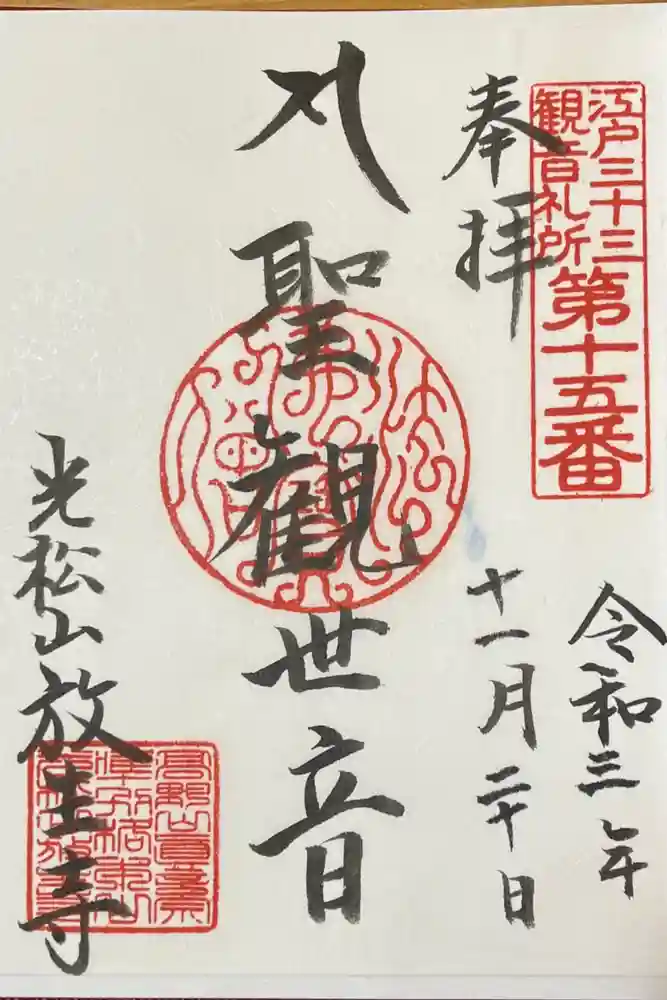 江戸三十三
観音札所
第十五番
奉拝
令和三年
十一月二十日
聖観世音
光松山放生寺